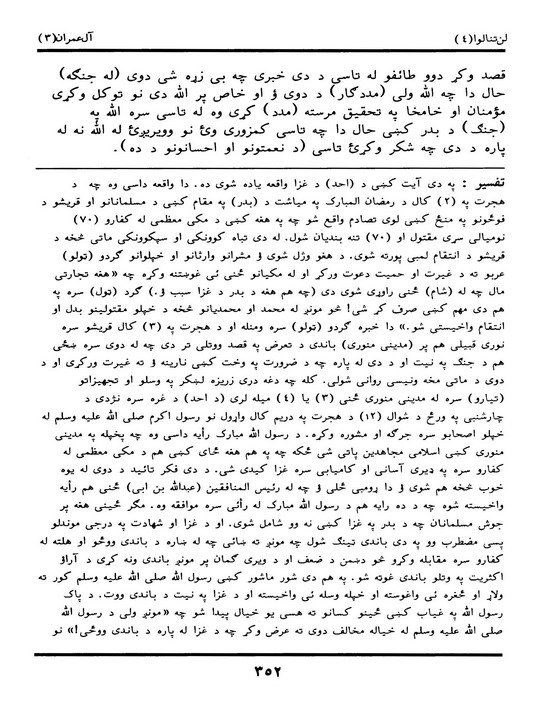 لن تنالوا (٤)
آل عمران (٣)
قصد وکړ دوو طائفو له تاسې د دې خبرې چه بې زړه شي دوی (له جنګه)
حال دا چه الله ولي (مددګار) د دوی ؤ او خاص پر الله دې نو توکل وکړي
مؤمنان او خامخا په تحقیق مرسته (مدد) کړې وه له تاسې سره الله په
(جنګ) د بدر کښې حال دا چه تاسې کمزوري وئ نو وویرېږئ له الله نه له
پاره د دې چه شکر وکړئ تاسې (د نعمتونو او احسانونو د ده).
تفسیر : په دې آیت کښې د (احد) د غزا واقعه یاده شوې ده. دا واقعه داسې وه چه د
هجرت په (٢) کال د رمضان المبارک په میاشت د (بدر) په مقام کښې د مسلمانانو او قریشو د
فوځونو په منځ کښې لوی تصادم واقع شو چه په هغه کښې د مکې معظمې له کفارو (٧٠)
نومیالي سړي مقتول او (٧٠) تنه بندیان شول. له دې تباه کوونکي او سپکوونکي ماتې څخه د
قریشو د انتقام لمبې پورته شوې. د هغو وژل شوو د مشرانو وارثانو او خپلوانو ګردو (ټولو)
عربو ته د غیرت او حمیت دعوت ورکړ او له مکیانو ځنې ئې غوښتنه وکړه چه «هغه تجارتي
مال چه له (شام) ځنې راوړی شوی دی (چه هم هغه د بدر د غزا سبب ؤ.) ګرد (ټول) سره په
هم دې مهم کښې صرف کړ شي! څو مونږ له محمد او محمدیانو څخه د خپلو مقتولینو بدل او
انتقام واخیستی شو.» دا خبره ګردو (ټولو) سره ومنله او د هجرت په (٣) کال قریشو سره
نورې قبیلې هم پر (مدینې منورې) باندې د تعرض په قصد ووتلې تر دې چه له دوی سره ښځې
هم د جنګ په نیت او د دې له پاره چه د ضرورت په وخت کښې نارینه ؤ ته غیرت ورکړي او د
دوی د ماتې مخه ونیسي روانې شولې. کله چه دغه درې زریزه لښکر په وسلو او تجهیزاتو
(تیارو) سره له مدینې منورې ځنې (٣) یا (٤) میله لرې (د احد) د غره سره نژدې د
چارشنبې په ورځ د شوال (١٢) د هجرت په دریم کال واړول نو رسول اکرم صلی الله علیه وسلم له
خپلو اصحابو سره جرګه او مشوره وکړه. د رسول الله مبارک رأیه داسې وه چه پخپله په مدینې
منورې کښې اسلامي مجاهدین پاتې شي ځکه چه په هم هغه ځای کښې هم د مکې معظمې له
کفارو سره په ډیرې آسانۍ او کامیابۍ سره غزا کیدی شي. د دې فکر تائید د دوی له یوه
خوب څخه هم شوی ؤ دا ړومبی ځلي ؤ چه له رئیس المنافقین (عبدالله بن ابي) ځنې هم رأیه
واخیسته شوه چه د ده رایه هم د رسول الله مبارک له رائې سره موافقه وه. مګر ځینې هغه پر
جوش مسلمانان چه د بدر په غزا کښې نه وو شامل شوي. او د غزا او شهادت په درجې موندلو
پسې مضطرب وو په دې باندې ټینګ شول چه مونږ ته ښائي چه له ښاره د باندې ووځو او هلته له
کفارو سره مقابله وکړو څو دښمن د ضعف او د ویرې ګمان پر مونږ باندې ونه کړي د آراؤ
اکثریت په وتلو باندې غوټه شو. په هم دې شور ماشور کښې رسول الله صلی الله علیه وسلم کور ته
ولاړ او ځغره ئې واغوسته او خپله وسله ئې واخیسته او د غزا په نیت د باندې ووت. د پاک
رسول الله په غیاب کښې ځینو کسانو ته هسې یو خیال پیدا شو چه «مونږ ولې د رسول الله
صلی الله علیه وسلم له خیاله مخالف دوی ته عرض وکړ چه د غزا له پاره د باندې ووځي!» نو
٣٥٢